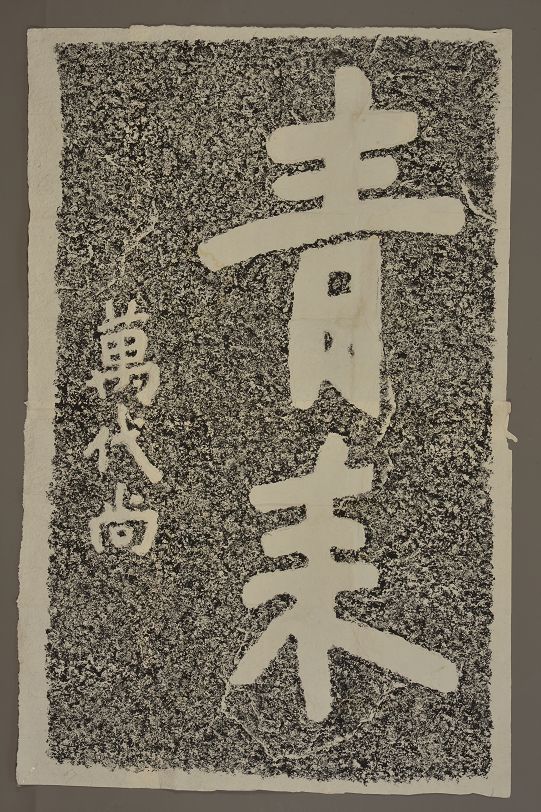 青未
萬代尚